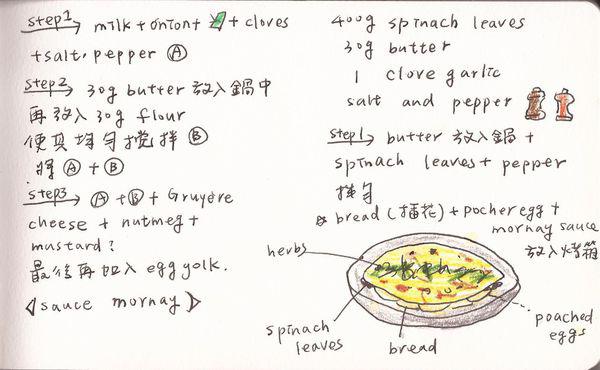 step1 milk + oniont + cloves
+ salt. pepper Ⓐ
step2 30g butter 放入鍋中
再放入30g flour
使其均勻攪拌 Ⓑ
將 Ⓐ + Ⓑ
step3 Ⓐ + Ⓑ + Gruyère
cheese + nutmeg +
mustard?
最後再加入 egg yolk.
<sauce mornay>
400g spinach leaves
30g butter
1 clove garlic
salt and pepper
step1 butter 放入鍋 +
spinach leaves + pepper
拌勻
bread (播花) + pocher egg +
mornay sauce
放入烤箱
herbs
spinach
leaves
bread
poached
eggs